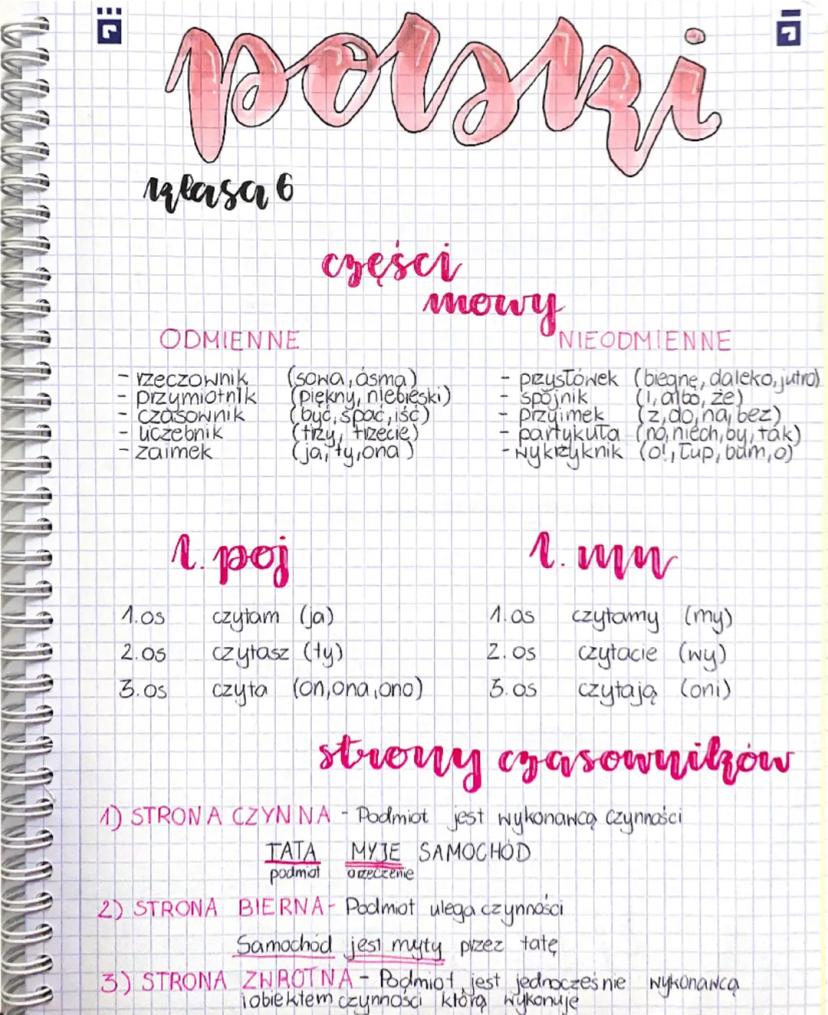 polski
klasa 6
części
mowy
ODMIENNE
- rzeczownik (sowa, ósma)
- przymiotnik (piękny, niebieski)
- czasownik (być, spać, iść)
- liczebnik (trzy, trzecie)
- zaimek (ja, ty, ona)
NIEODMIENNE
- przysłówek (biegnę, daleko, jutro)
- spójnik (i, albo, że)
- przyimek (z, do, na, bez)
- partykuła (no, niech, by, tak)
- wykrzyknik (o!, łup, bum, o)
l. poj
1.os czytam (ja)
2.os czytasz (ty)
3.os czyta (on, ona, ono)
l. mn
1.os czytamy (my)
2.os czytacie (wy)
3.os czytają (oni)
strony czasowników
1) STRONA CZYNNA - Podmiot jest wykonawcą czynności
TATA MYJE SAMOCHÓD
podmiot orzeczenie
2) STRONA BIERNA - Podmiot ulega czynności
Samochód jest myty przez tatę
3) STRONA ZWROTNA - Podmiot jest jednocześnie wykonawcą
i obiektem czynności którą wykonuje